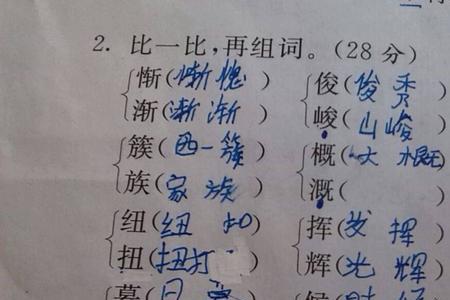 2. 比一比,再组词。(28分)
惭(惭愧) 俊(俊秀)
渐(渐渐) 峻(山峻)
簇(一簇) 概(大概)
族(家族) 溉( )
纽(纽扣) 挥(发挥)
扭(扭打) 辉(光辉)